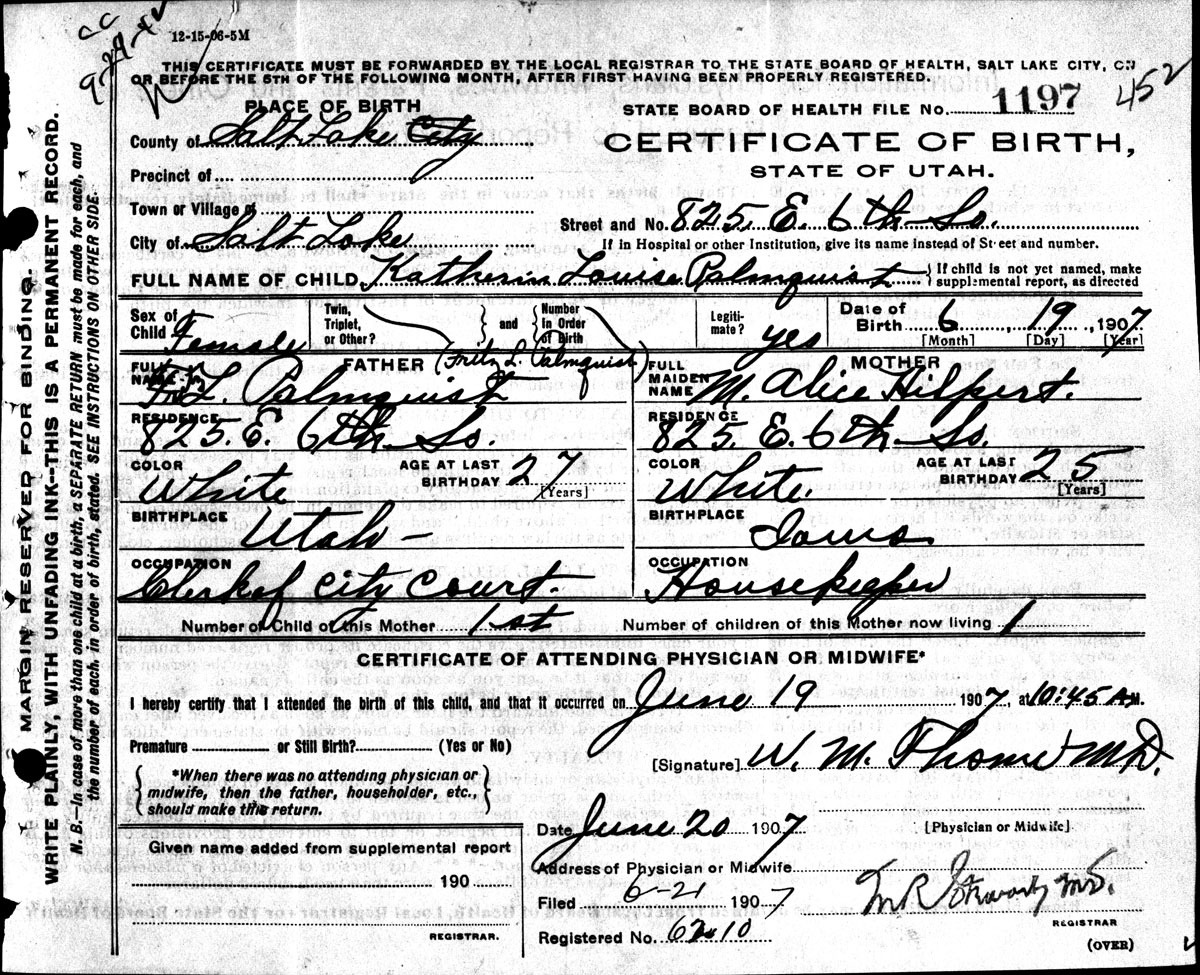 CC
9-29-42
12-15-06-5M
THIS CERTIFICATE MUST BE FORWARDED BY THE LOCAL REGISTRAR TO THE STATE BOARD OF HEALTH, SALT LAKE CITY, ON
OR BEFORE THE 5TH OF THE FOLLOWING MONTH, AFTER FIRST HAVING BEEN PROPERLY REGISTERED.
452
PLACE OF BIRTH
STATE BOARD OF HEALTH FILE No. 1197
County of Salt Lake City
CERTIFICATE OF BIRTH,
Precinct of
STATE OF UTAH.
Town or Village of
Street and No. 825 E. 6th So.
City of Salt Lake
If in Hospital or other Institution, give its name instead of Street and number.
FULL NAME OF CHILD Katherin Louise Palmquist { If child is not yet named, make supplemental report, as directed
Sex of Child Female
Twin, Triplet, or Other? } and { Number in Order of Birth
Legitimate? yes
Date of Birth 6, 19, 1907
[Month] [Day] [Year]
FATHER (Fritz L. Palmquist)
MOTHER
FULL NAME F. L. Palmquist
FULL MAIDEN NAME M. Alice Hilpert.
RESIDENCE 825. E. 6th So
RESIDENCE 825 E. 6th So.
COLOR White AGE AT LAST BIRTHDAY 27 [Years]
COLOR White. AGE AT LAST BIRTHDAY 25 [Years]
BIRTHPLACE Utah
BIRTHPLACE Iowa
OCCUPATION Clerk of City Court.
OCCUPATION Housekeeper
Number of Child of this Mother 1st
Number of children of this Mother now living 1
CERTIFICATE OF ATTENDING PHYSICIAN OR MIDWIFE*
I hereby certify that I attended the birth of this child, and that it occurred on June 19 1907, at 10:45 A M.
Premature or Still Birth? (Yes or No)
[Signature] W. M. Thome MD.
{ *When there was no attending physician or midwife, then the father, householder, etc., should make this return. }
Date June 20 1907
[Physician or Midwife]
Given name added from supplemental report
190
Address of Physician or Midwife
Filed 6-21 1907
M.D.
REGISTRAR.
REGISTRAR
Registered No.
(OVER)
MARGIN RESERVED FOR BINDING.
WRITE PLAINLY, WITH UNFADING INK—THIS IS A PERMANENT RECORD.
N. B.—In case of more than one child at a birth, a SEPARATE RETURN must be made for each, and
the number of each, in order of birth, stated. SEE INSTRUCTIONS ON OTHER SIDE.